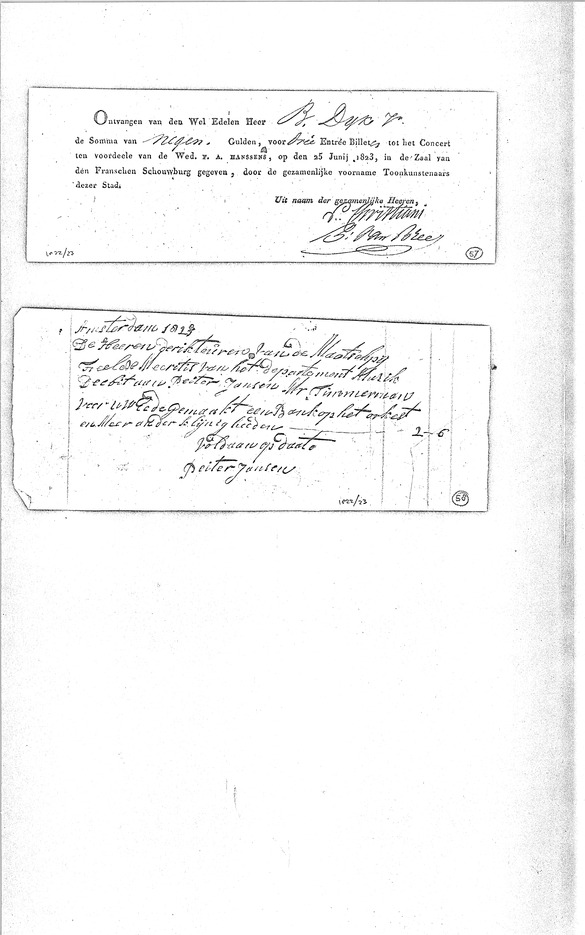 Ontvangen van den Wel Edelen Heer B. Dyk Jr.
de Somma van negen. Gulden, voor drie Entrée Billets tot het Concert
ten voordeele van de Wed. F. A. HANSSENS, op den 25 Junij 1823, in de Zaal van
den Franschen Schouwburg gegeven, door de gezamenlijke voorname Toonkunstenaars
dezer Stad.
Uit naam der gezamenlijke Heeren,
E: Van Bree
1822/23
57
Amsterdam 1823
De Heeren derikteuren van de Maatschpy
Felix Meeretis van het departement Musik
Deebit aan Peiter Jansen Mr. Timmerman
voor UW Ede gemaakt een Bank op het orkest
en Meer ander klijnigheeden 2-6
Voldaan op daato
Peiter Jansen
1822/23
58